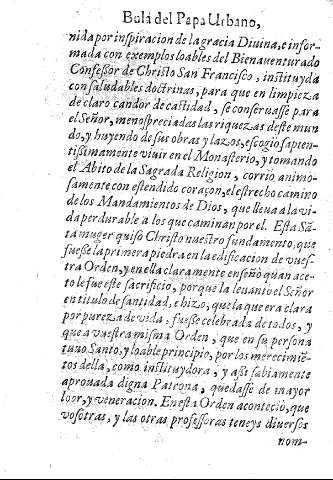 Bula del Papa Urbano,
nida por inspiracion de la gracia Diuina, e infor-
mada con exemplos loables del Bienauenturado
Confessor de Christo San Francisco, instituyda
con saludables doctrinas, para que en limpieza
de claro candor de castidad, se conseruasse para
el Señor, menospreciadas las riquezas deste mun
do, y huyendo de sus obras y lazos, escogio sapien-
tissimamente viuir en el Monasterio, y tomando
el Abito de la Sagrada Religion, corrio animo-
samente con estendido coraçon, el estrecho camino
de los Mandamientos de Dios, que lleua a la vi-
da perdurable a los que caminan por el. Esta Sā-
ta muger quiso Christo nuestro fundamento, que
fuesse la primera piedra en la edificacion de vues-
tra Orden, y en ella claramente enseñó quan ace-
to le fue este sacrificio, porque la leuantò el Señor
en titulo de santidad, e hizo, que la que era clara
por pureza de vida, fuesse celebrada de todos, y
que a vuestra misma Orden, que en su persona
tuuo Santo, y loable principio, por los merecimiē-
tos della, como instituydora, y assi sabiamente
aprouada digna Patrona, quedasse de mayor
loor, y veneracion. En esta Orden acontecio, que
vosotras, y las otras professoras teneys diuersos
nom-